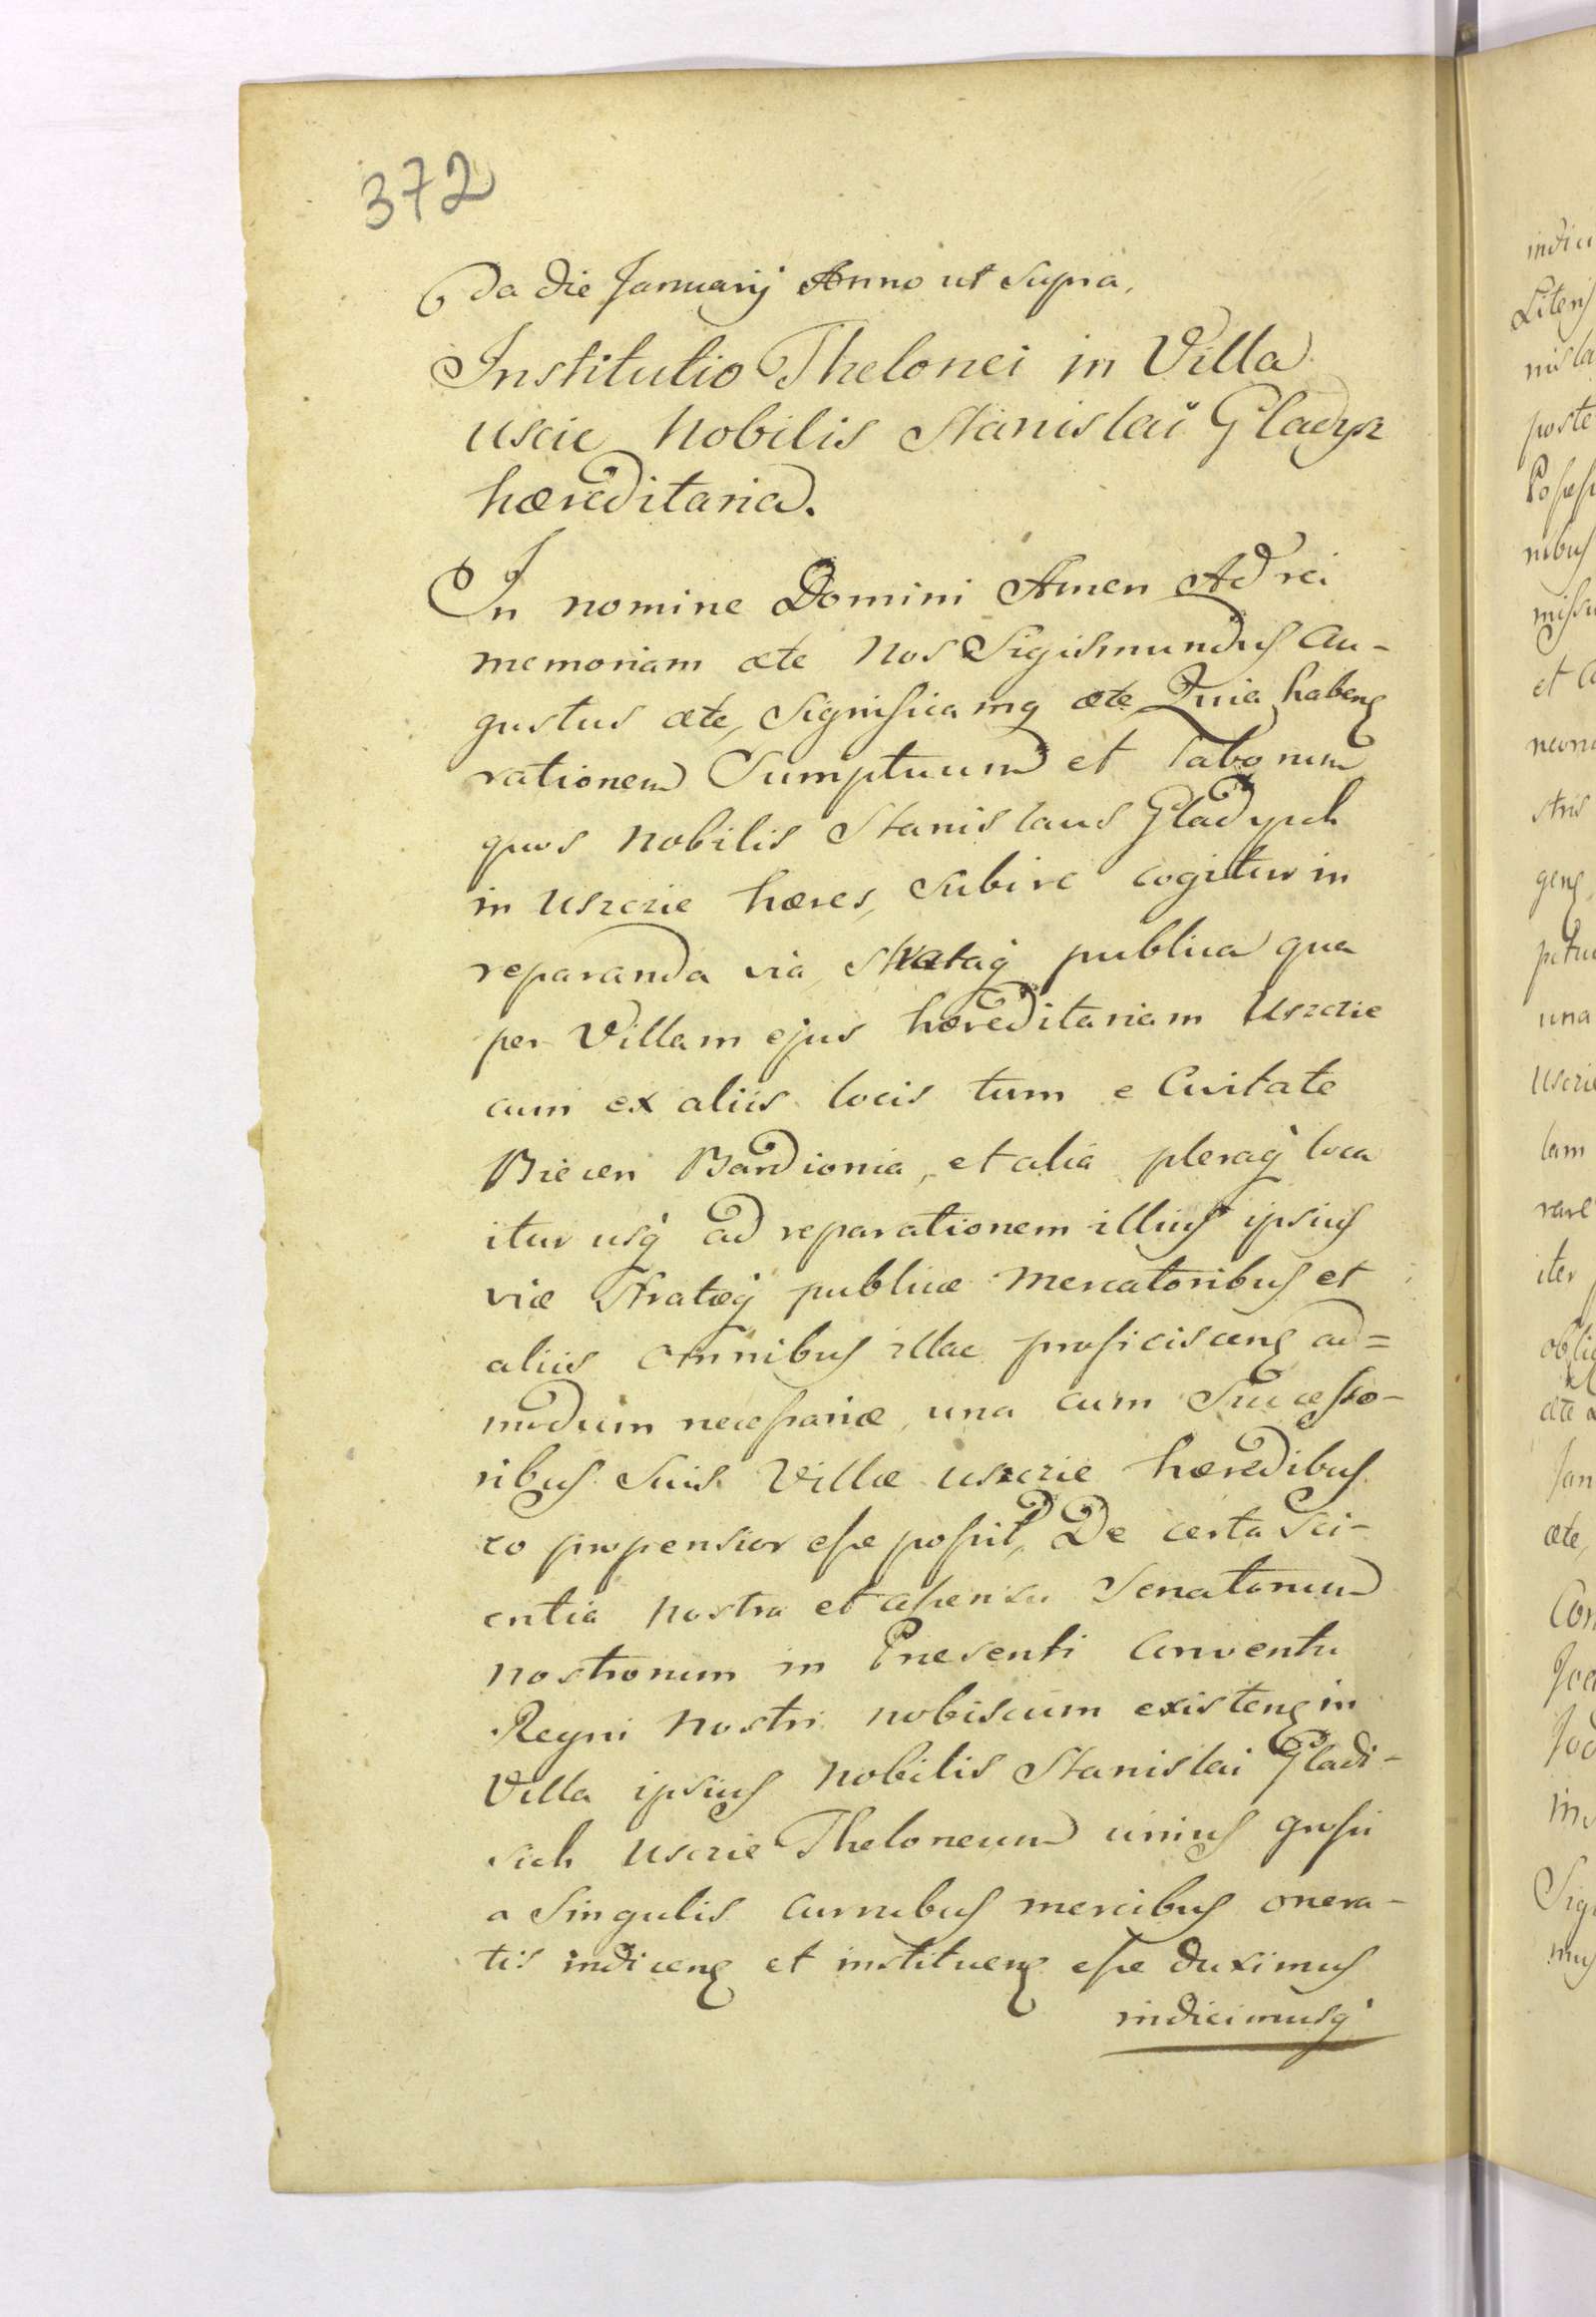 372
6 da die Januarij Anno ut supra,
Institutio Thelonei in Villa
uscie Nobilis Stanislai Gladysz
hæreditaria.
In nomine Domini Amen Ad rei
memoriam æte Nos Sigismundus Au-
gustus æte, significamq æte Quia habenę
rationem Sumptuum et Laborum
quos Nobilis Stanislaus Gladysch
in Uszczie hæres, subire cogitur in
reparanda via, strataq publica qua
per Villam ejus hæreditariam Uszczie
cum ex aliis locis tum e Civitate
Biecen Bardionia, et alia pleraq loca
itur usq ad reparationem illius ipsius
viæ Stratæq publicæ Mercatoribus et
aliis omnibus illac proficiscenę ad=
modum necessariæ, una cum Successo-
ribus suis Villæ uszczie hæredibus
eo propensior esse possit, De certa sci-
entia nostra et assensu Senatorum
nostrorum in Presenti Conventu
Regni Nostri nobiscum existenę in
Villa ipsius Nobilis Stanislai Gladi-
sich Usczie Theloneum unius grossi
a Singulis curribus mercibus onera-
tis indicenę et instituenę esse duximus
indicimusq
indicu
Liters
nisla
poste
Posess
nibus
et
stris
genę
petuu
una
Usczie
lam
iter
oblig
æte
Jan
æte,
Con
Joa
in
Sigi
mus